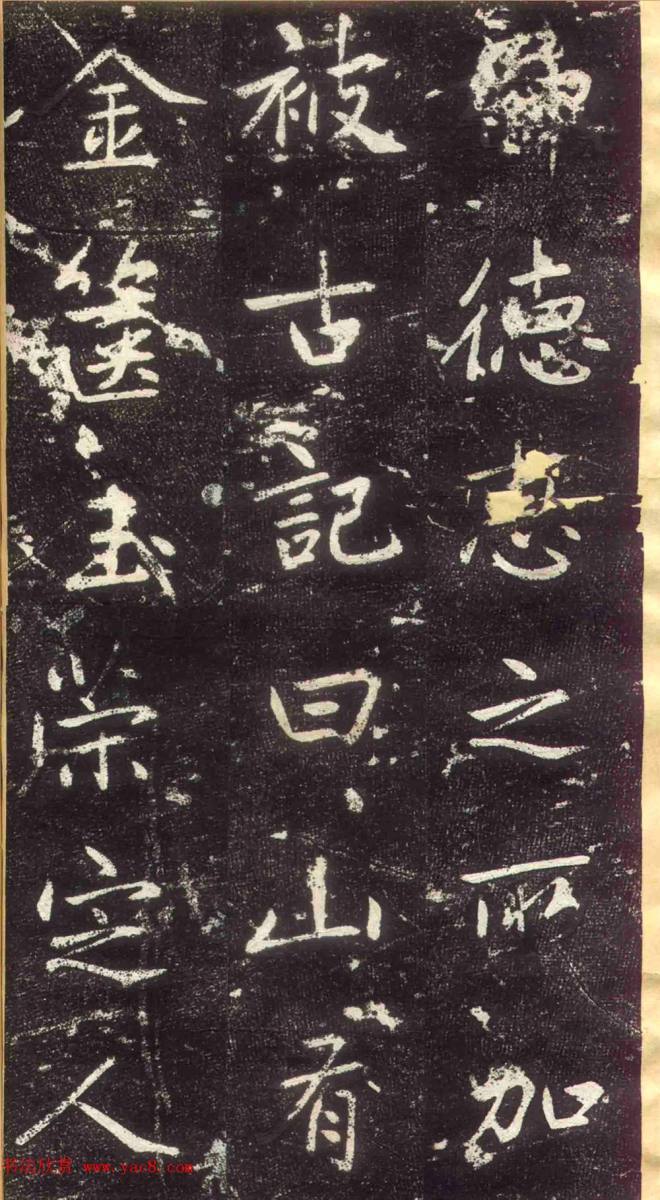 德之所加
被古記曰山有
金篋玉策定人
书法欣赏 www.yac8.com